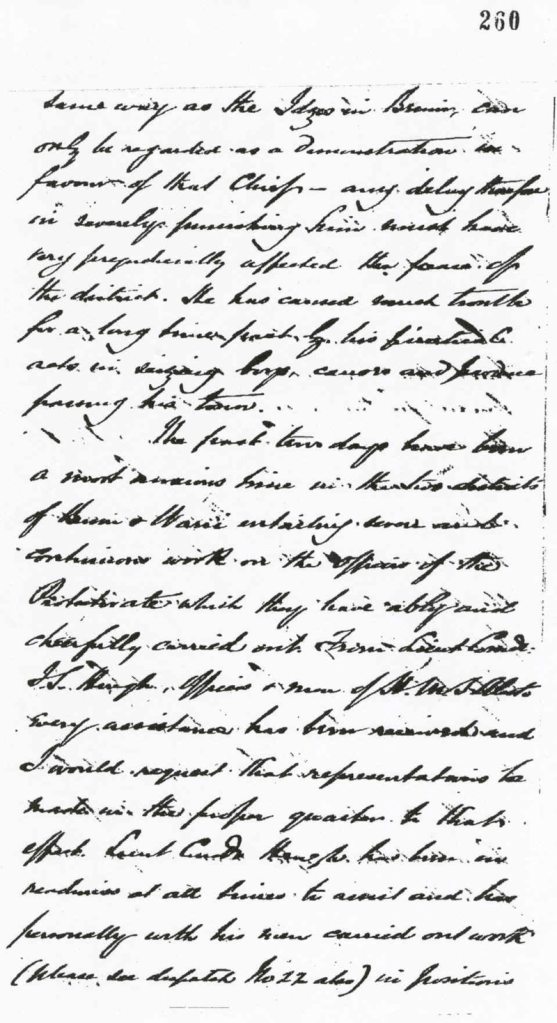 260
same way as the Idzos in Benin, can
only be regarded as a demonstration in
favour of that Chief – any delay therefore
in severely punishing him must have
very prejudicially affected the peace of
the district. He has caused much trouble
for a long time past by his piratical
acts in seizing boys, canoes and produce
passing his town.
The past two days have been
a most anxious time in the two districts
of Benin & Warri entailing severe and
continuous work on the Officers of the
Protectorate which they have ably and
cheerfully carried out. From Lieut Comdr
Officers & men of H.M.S. Alecto
every assistance has been received and
I would request that representations be
made in the proper quarter to that
effect. Lieut Comdr has been in
readiness at all times to assist and has
personally with his men carried out work
(please see despatch No 22 also) in positions